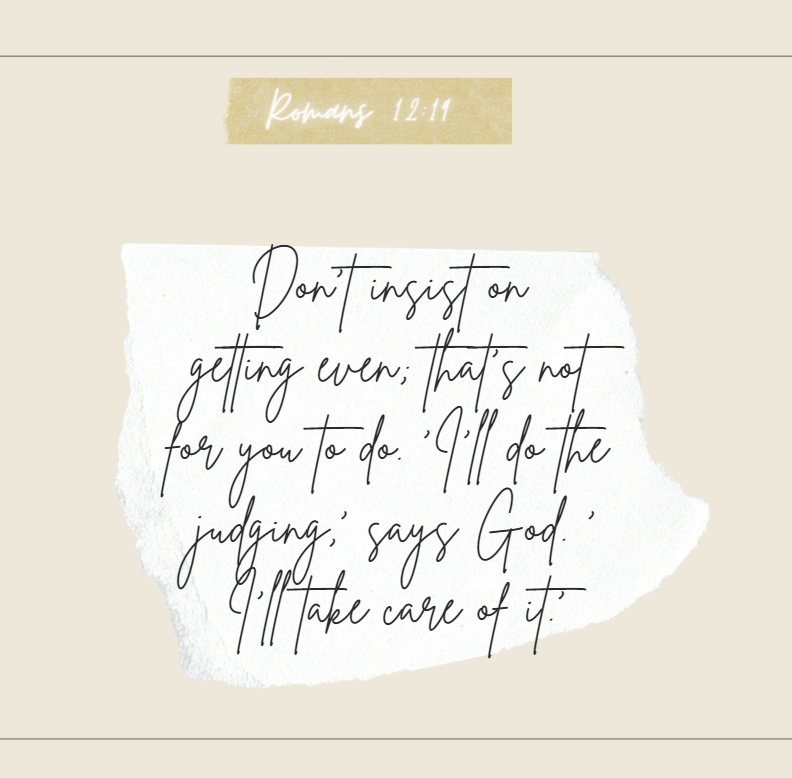 Romans 12:19
Don't insist on
getting even; that's not
for you to do. 'I'll do the
judging,' says God. '
I'll take care of it.'